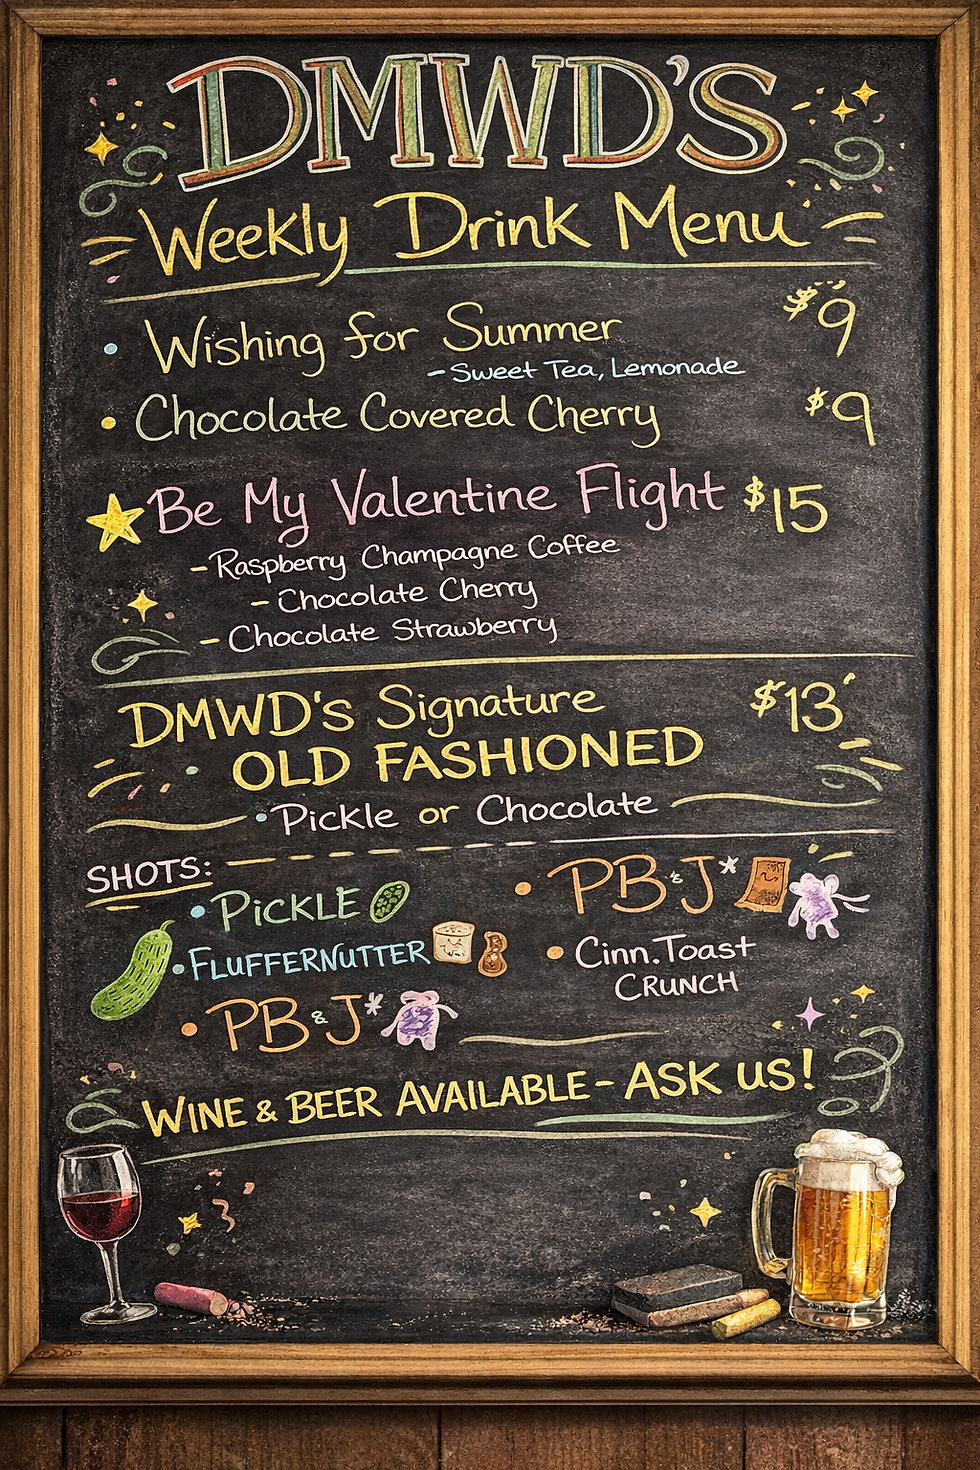 DMWD'S
Weekly Drink Menu
• Wishing for Summer $9
- Sweet Tea, Lemonade
• Chocolate Covered Cherry $9
Be My Valentine Flight $15
- Raspberry Champagne Coffee
- Chocolate Cherry
- Chocolate Strawberry
DMWD's Signature $13
OLD FASHIONED
• Pickle or Chocolate
SHOTS:
• PICKLE
• FLUFFERNUTTER
• PB & J*
• PB & J*
• Cinn. Toast
CRUNCH
WINE & BEER AVAILABLE - ASK US!